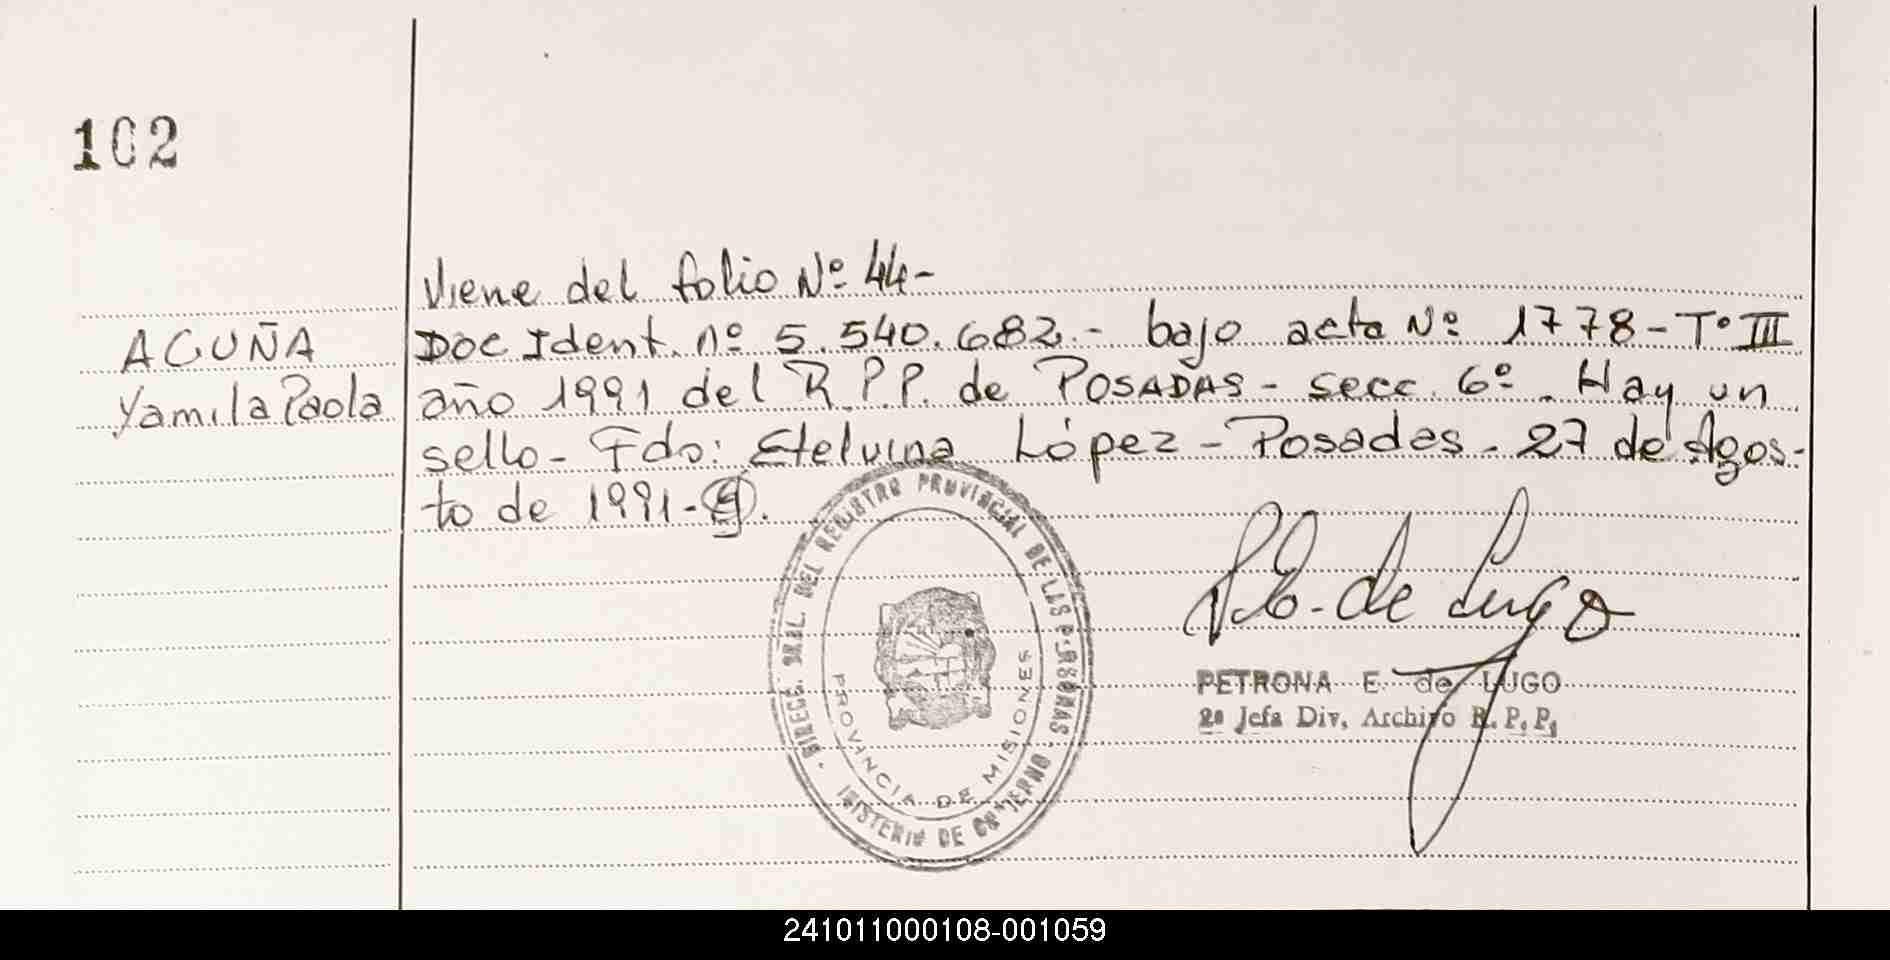 102
Viene del folio Nº 44-
ACUÑA
Yamila Paola
Doc Ident. nº 5.540.682.- bajo acta Nº 1778-Tº III
año 1991 del R.P.P. de POSADAS - secc. 6º. Hay un
sello- Fdo: Etelvina López - Posadas. 27 de Agos-
to de 1991-
DIRECC. GRAL. DEL REGISTRO PROVINCIAL DE LAS PERSONAS.
MINISTERIO DE GOBIERNO
PROVINCIA DE MISIONES
P.E. de Lugo
PETRONA E. de LUGO
2ª Jefa Div. Archivo R.P.P.
241011000108-001059